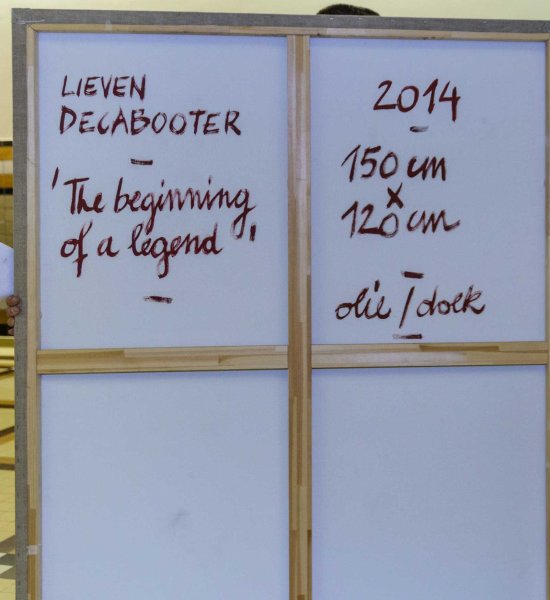 LIEVEN
DECABOOTER
'The beginning
of a legend'
2014
150 cm
x
120 cm
olie / doek